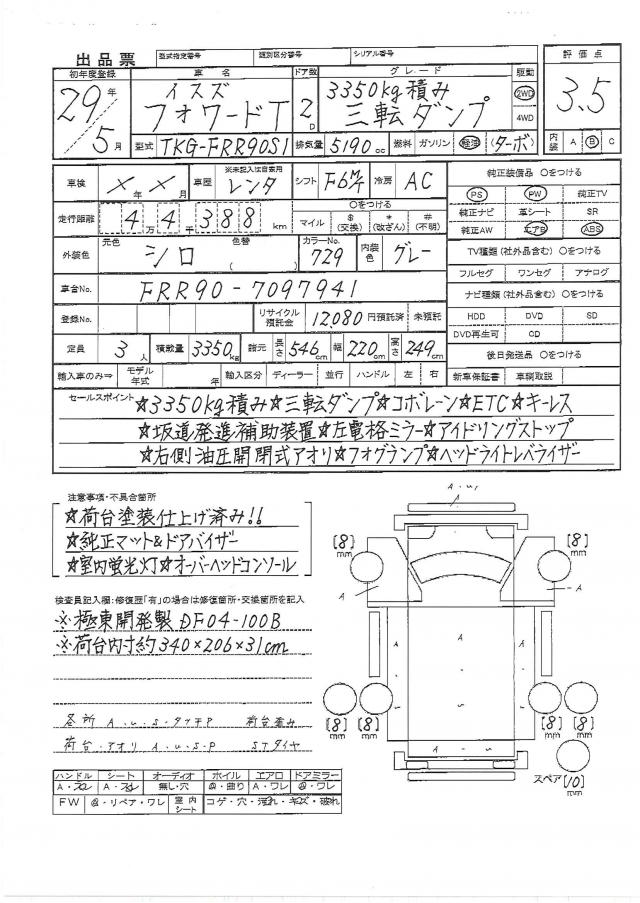 出品票 型式指定番号 類別区分番号 シリアル番号
初年度登録 車名 ドア数 グレード 駆動 評価点
29年 5月 イスズ フォワードT 2D 3350kg積み 三転ダンプ 2WD 4WD 3.5
型式 TKG-FRR90S1 排気量 5190cc 燃料 ガソリン・軽油・(ターボ) 内装 A B C
車検 ×年×月 車歴 ※未記入は自家用 レンタ シフト F6M/T 冷房 AC
純正装備品 〇をつける
PS PW 純正TV
純正ナビ 革シート SR
純正AW エアB ABS
走行距離 4万4千388km 〇をつける マイル $(交換) *(改ざん) #(不明)
外装色 元色 シロ 色替 ( ) カラーNo. 729 内装色 グレー
TV種類(社外品含む) 〇をつける
フルセグ ワンセグ アナログ
車台No. FRR90-7097941
ナビ種類(社外品含む) 〇をつける
HDD DVD SD
DVD再生可 CD
登録No. リサイクル預託金 12,080 円預託済 未預託
定員 3人 積載量 3350kg 諸元 長さ 546cm 幅 220cm 高さ 249cm
後日発送品 〇をつける
輸入車のみ⇒ モデル年式 年 輸入区分 ディーラー 並行 ハンドル 左 右 新車保証書 車輌取説
セールスポイント ☆3350kg積み☆三転ダンプ☆コボレーン☆ETC☆キーレス
☆坂道発進補助装置☆左電格ミラー☆アイドリングストップ
☆右側油圧開閉式アオリ☆フォグランプ☆ヘッドライトレベライザー
注意事項・不具合箇所
☆荷台塗装仕上げ済み!!
☆純正マット&ドアバイザー
☆室内蛍光灯☆オーバーヘッドコンソール
検査員記入欄:修復歴「有」の場合は修復箇所・交換箇所を記入
※極東開発製 DF04-100B
※荷台内寸約340×206×31cm
各所 A・U・S・タッチP
荷台・アオリ A・U・S・P STタイヤ
ハンドル シート オーディオ ホイル エアロ ドアミラー
A・スレ A・スレ 無し・穴 @・曲り A・ワレ @・ワレ
FW @・リペア・ワレ 室内シート コゲ・穴・汚れ・キズ・破れ
A・U・S
A
[8]mm [8]mm
A A
A A A
S S
[8]mm [8]mm [8]mm [8]mm
A・S
スペア [10]mm